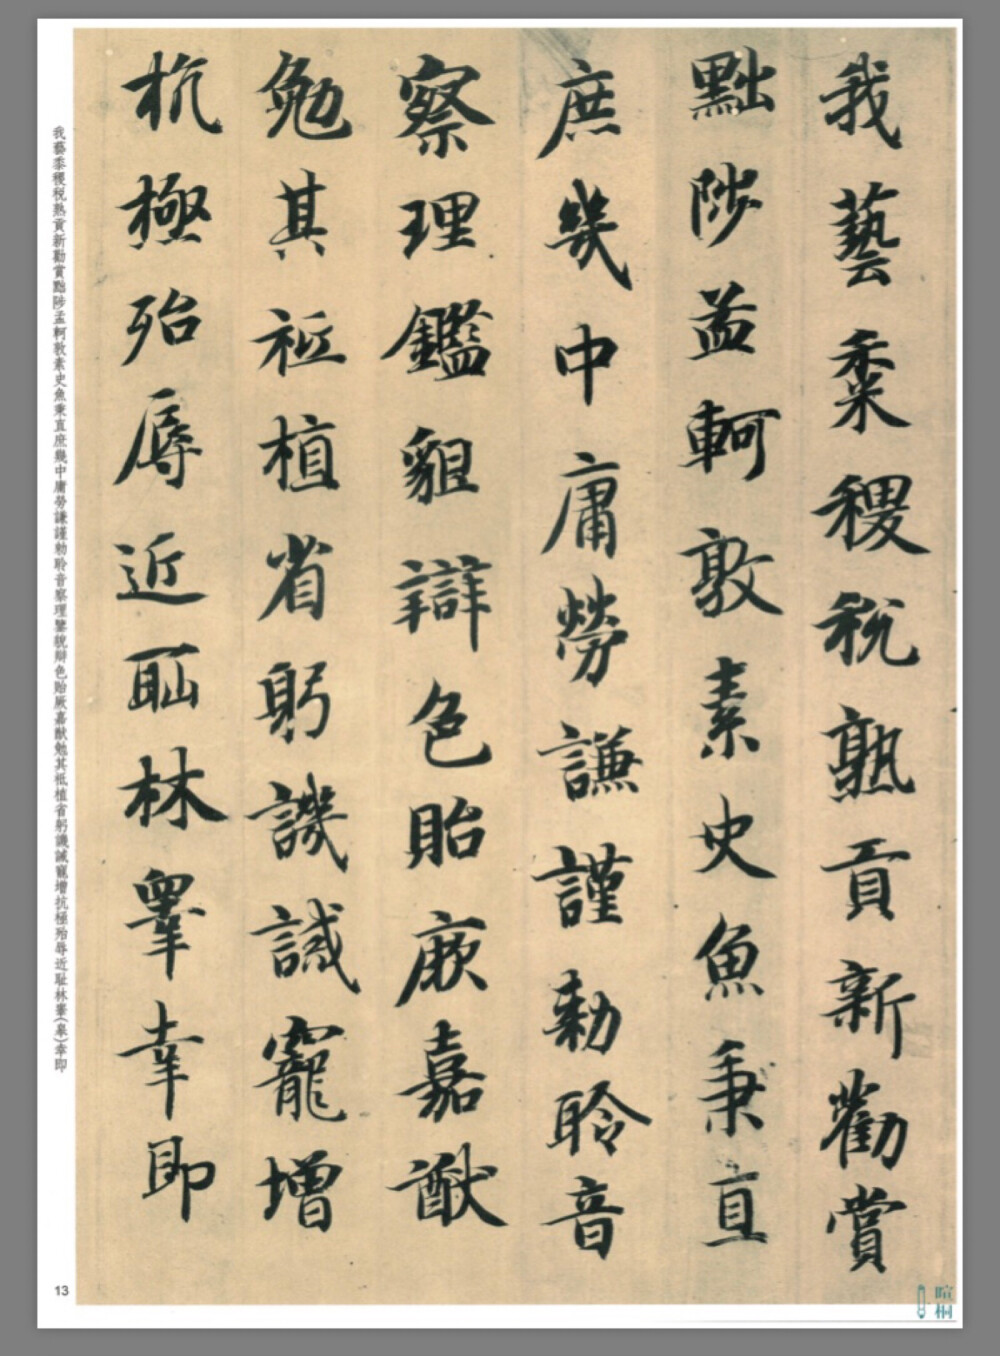 我藝黍稷稅熟貢新勸賞
黜陟孟軻敦素史魚秉直
庶幾中庸勞謙謹勑聆音
察理鑑貌辯色貽厥嘉猷
勉其祗植省躬譏誡寵增
抗極殆辱近恥林睪幸即
我藝黍稷税熟貢新勸賞黜陟孟軻敦素史魚秉直庶幾中庸勞謙謹勑聆音察理鑒貌辯色貽厥嘉猷勉其祗植省躬譏誡寵增抗極殆辱近耻林睪(皋)幸即
13
暄桐